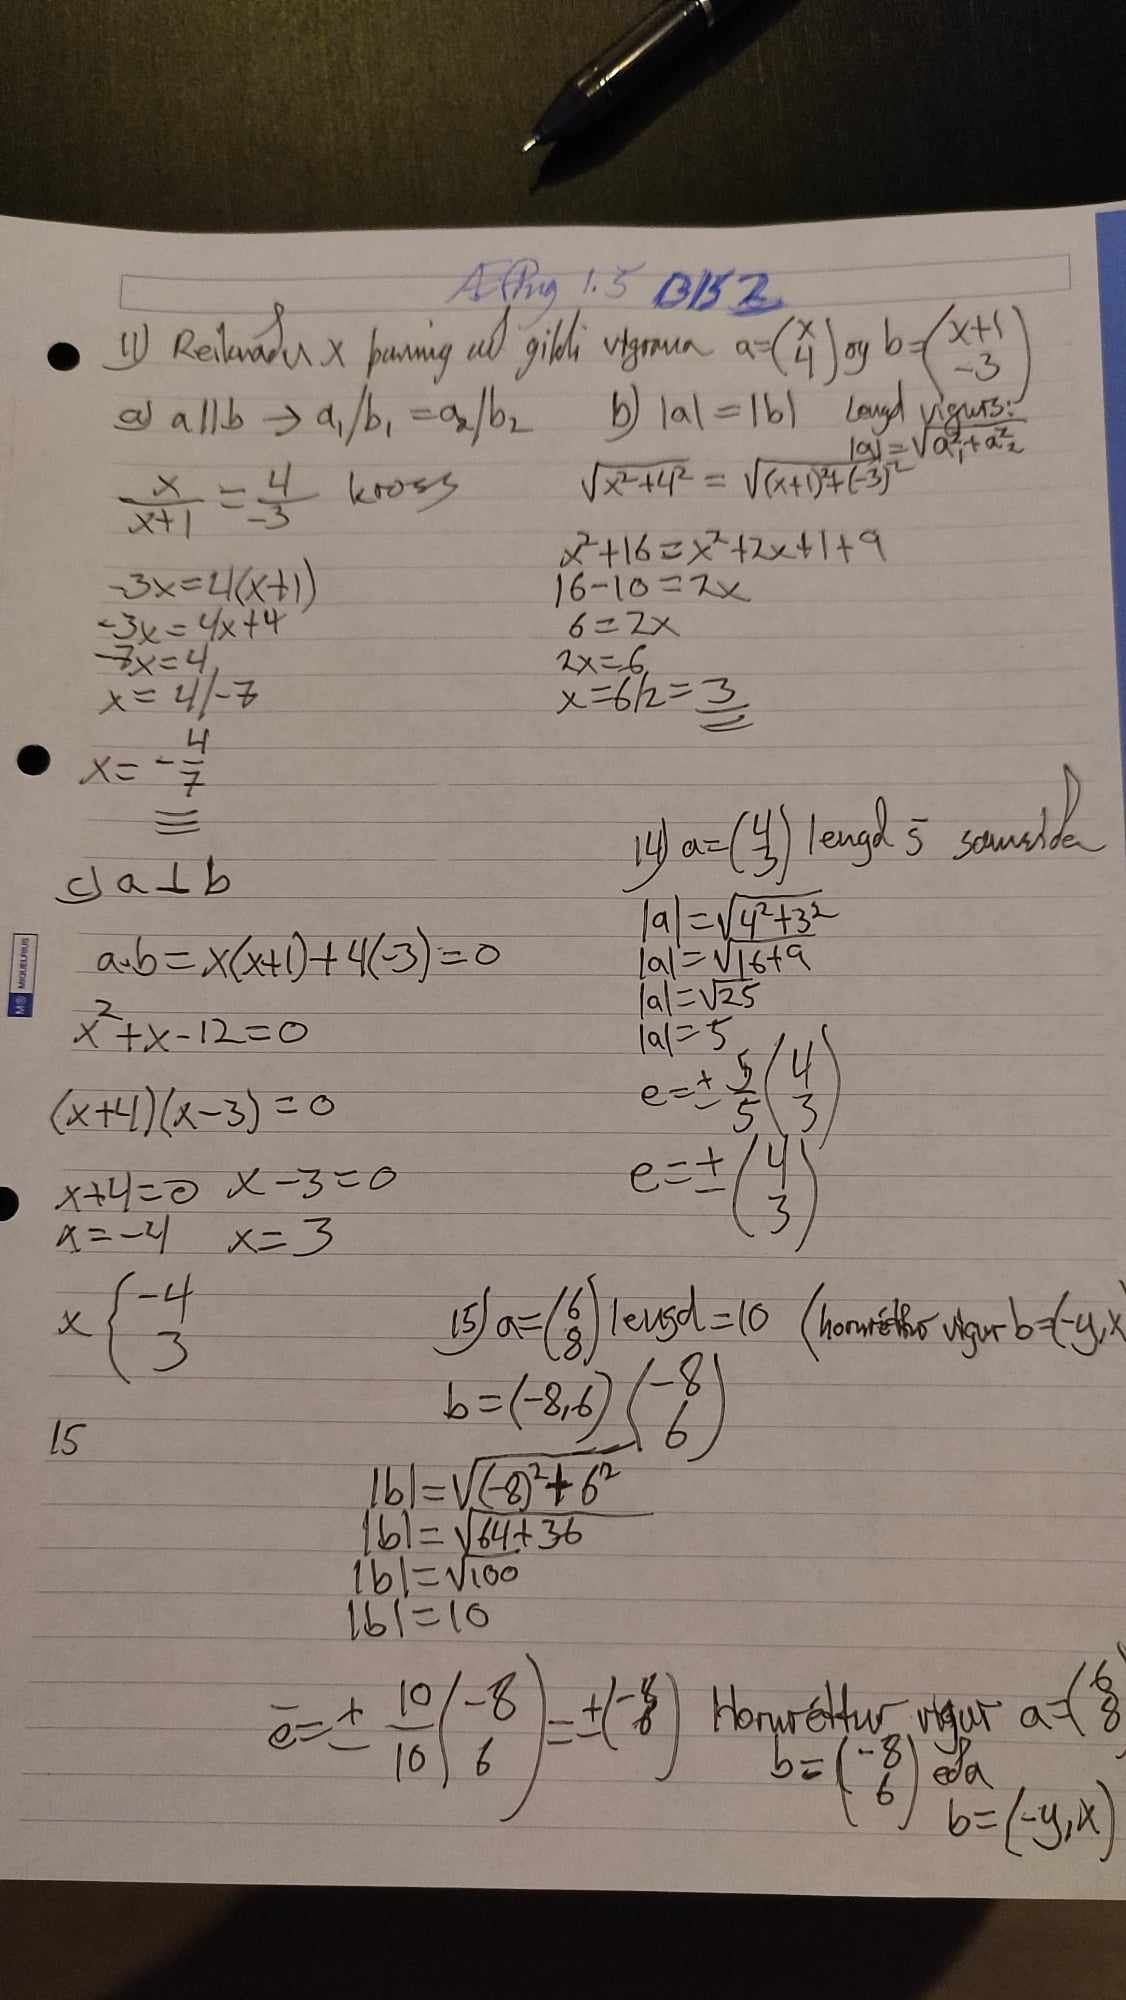 Æfing 1.5 B1S 2
11) Reiknaðu x þannig að gildi vigrana a=(x 4) og b=(x+1 -3)
a) a||b → a₁/b₁ = a₂/b₂
x/(x+1) = 4/-3 kross
-3x=4(x+1)
-3x=4x+4
-7x=4
x=4/-7
x=-4/7
b) |a|=|b| Lengd vigurs:
|a|=√(a₁²+a₂²)
√(x²+4²) = √((x+1)²+(-3)²)
x²+16=x²+2x+1+9
16-10=2x
6=2x
2x=6
x=6/2=3
c) a⊥b
a·b=x(x+1)+4(-3)=0
x²+x-12=0
(x+4)(x-3)=0
x+4=0 x-3=0
x=-4 x=3
x { -4 3
14) a=(4 3) lengd 5 samsíða
|a|=√(4²+3²)
|a|=√(16+9)
|a|=√25
|a|=5
e=± 5/5 (4 3)
e=± (4 3)
15
15) a=(6 8) lengd=10 (hornréttur vigur b=(-y,x
b=(-8,6) (-8 6)
|b|=√((-8)²+6²)
|b|=√(64+36)
|b|=√100
|b|=10
e=± 10/10 (-8 6) =±(-8 6)
Hornréttur vigur a=(6 8)
b=(-8 6) eða
b=(-y,x)
M MIQUELRIUS